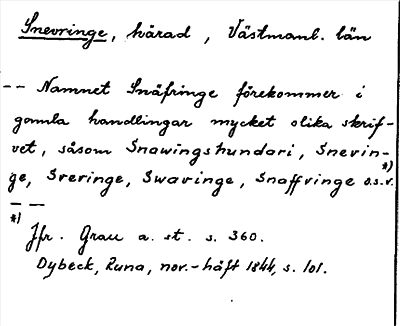 Snevringe, härad, Västmanl. län
-- Namnet Snäfringe förekommer i
gamla handlingar mycket olika skrif-
vet, såsom Snawingshundari, Snevin-
ge, Sveringe, Swavinge, Snaffvinge o.s.v. *)
--
*)
Jfr. Grau a. st. s. 360.
Dybeck, Runa, nov.-häft 1844, s. 101.